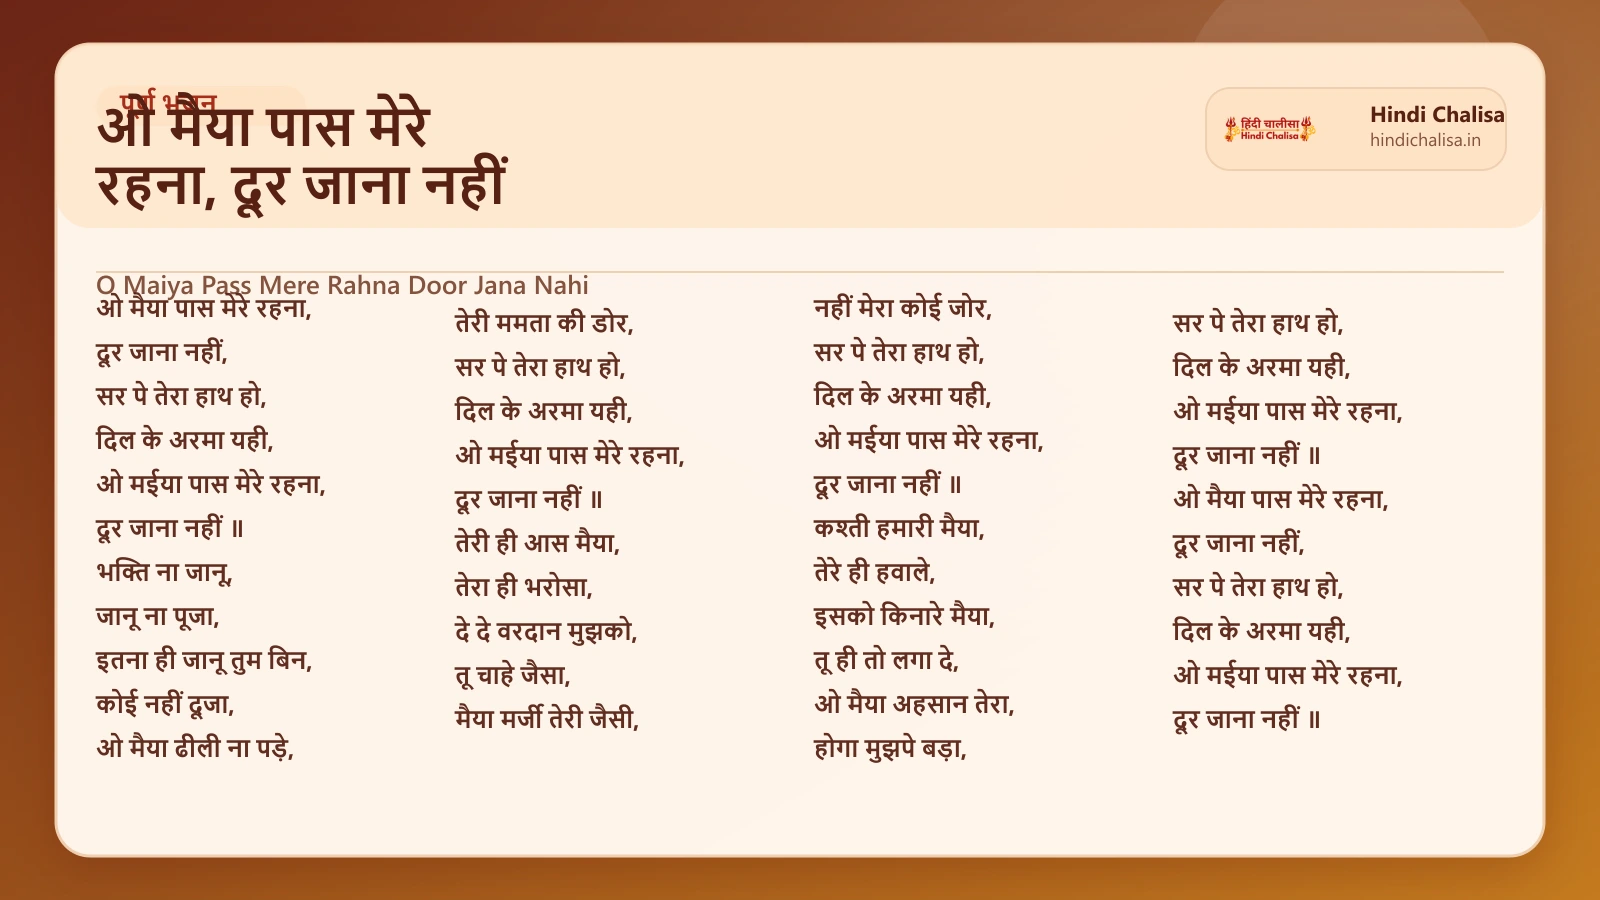 पूर्ण भजन
ओ मैया पास मेरे
रहना, दूर जाना नहीं
हिंदी चालीसा
Hindi Chalisa
Hindi Chalisa
hindichalisa.in
O Maiya Pass Mere Rahna Door Jana Nahi
ओ मैया पास मेरे रहना,
दूर जाना नहीं,
सर पे तेरा हाथ हो,
दिल के अरमा यही,
ओ मईया पास मेरे रहना,
दूर जाना नहीं ॥
भक्ति ना जानू,
जानू ना पूजा,
इतना ही जानू तुम बिन,
कोई नहीं दूजा,
ओ मैया ढीली ना पड़े,
तेरी ममता की डोर,
सर पे तेरा हाथ हो,
दिल के अरमा यही,
ओ मईया पास मेरे रहना,
दूर जाना नहीं ॥
तेरी ही आस मैया,
तेरा ही भरोसा,
दे दे वरदान मुझको,
तू चाहे जैसा,
मैया मर्जी तेरी जैसी,
नहीं मेरा कोई जोर,
सर पे तेरा हाथ हो,
दिल के अरमा यही,
ओ मईया पास मेरे रहना,
दूर जाना नहीं ॥
कश्ती हमारी मैया,
तेरे ही हवाले,
इसको किनारे मैया,
तू ही तो लगा दे,
ओ मैया अहसान तेरा,
होगा मुझपे बड़ा,
सर पे तेरा हाथ हो,
दिल के अरमा यही,
ओ मईया पास मेरे रहना,
दूर जाना नहीं ॥
ओ मैया पास मेरे रहना,
दूर जाना नहीं,
सर पे तेरा हाथ हो,
दिल के अरमा यही,
ओ मईया पास मेरे रहना,
दूर जाना नहीं ॥